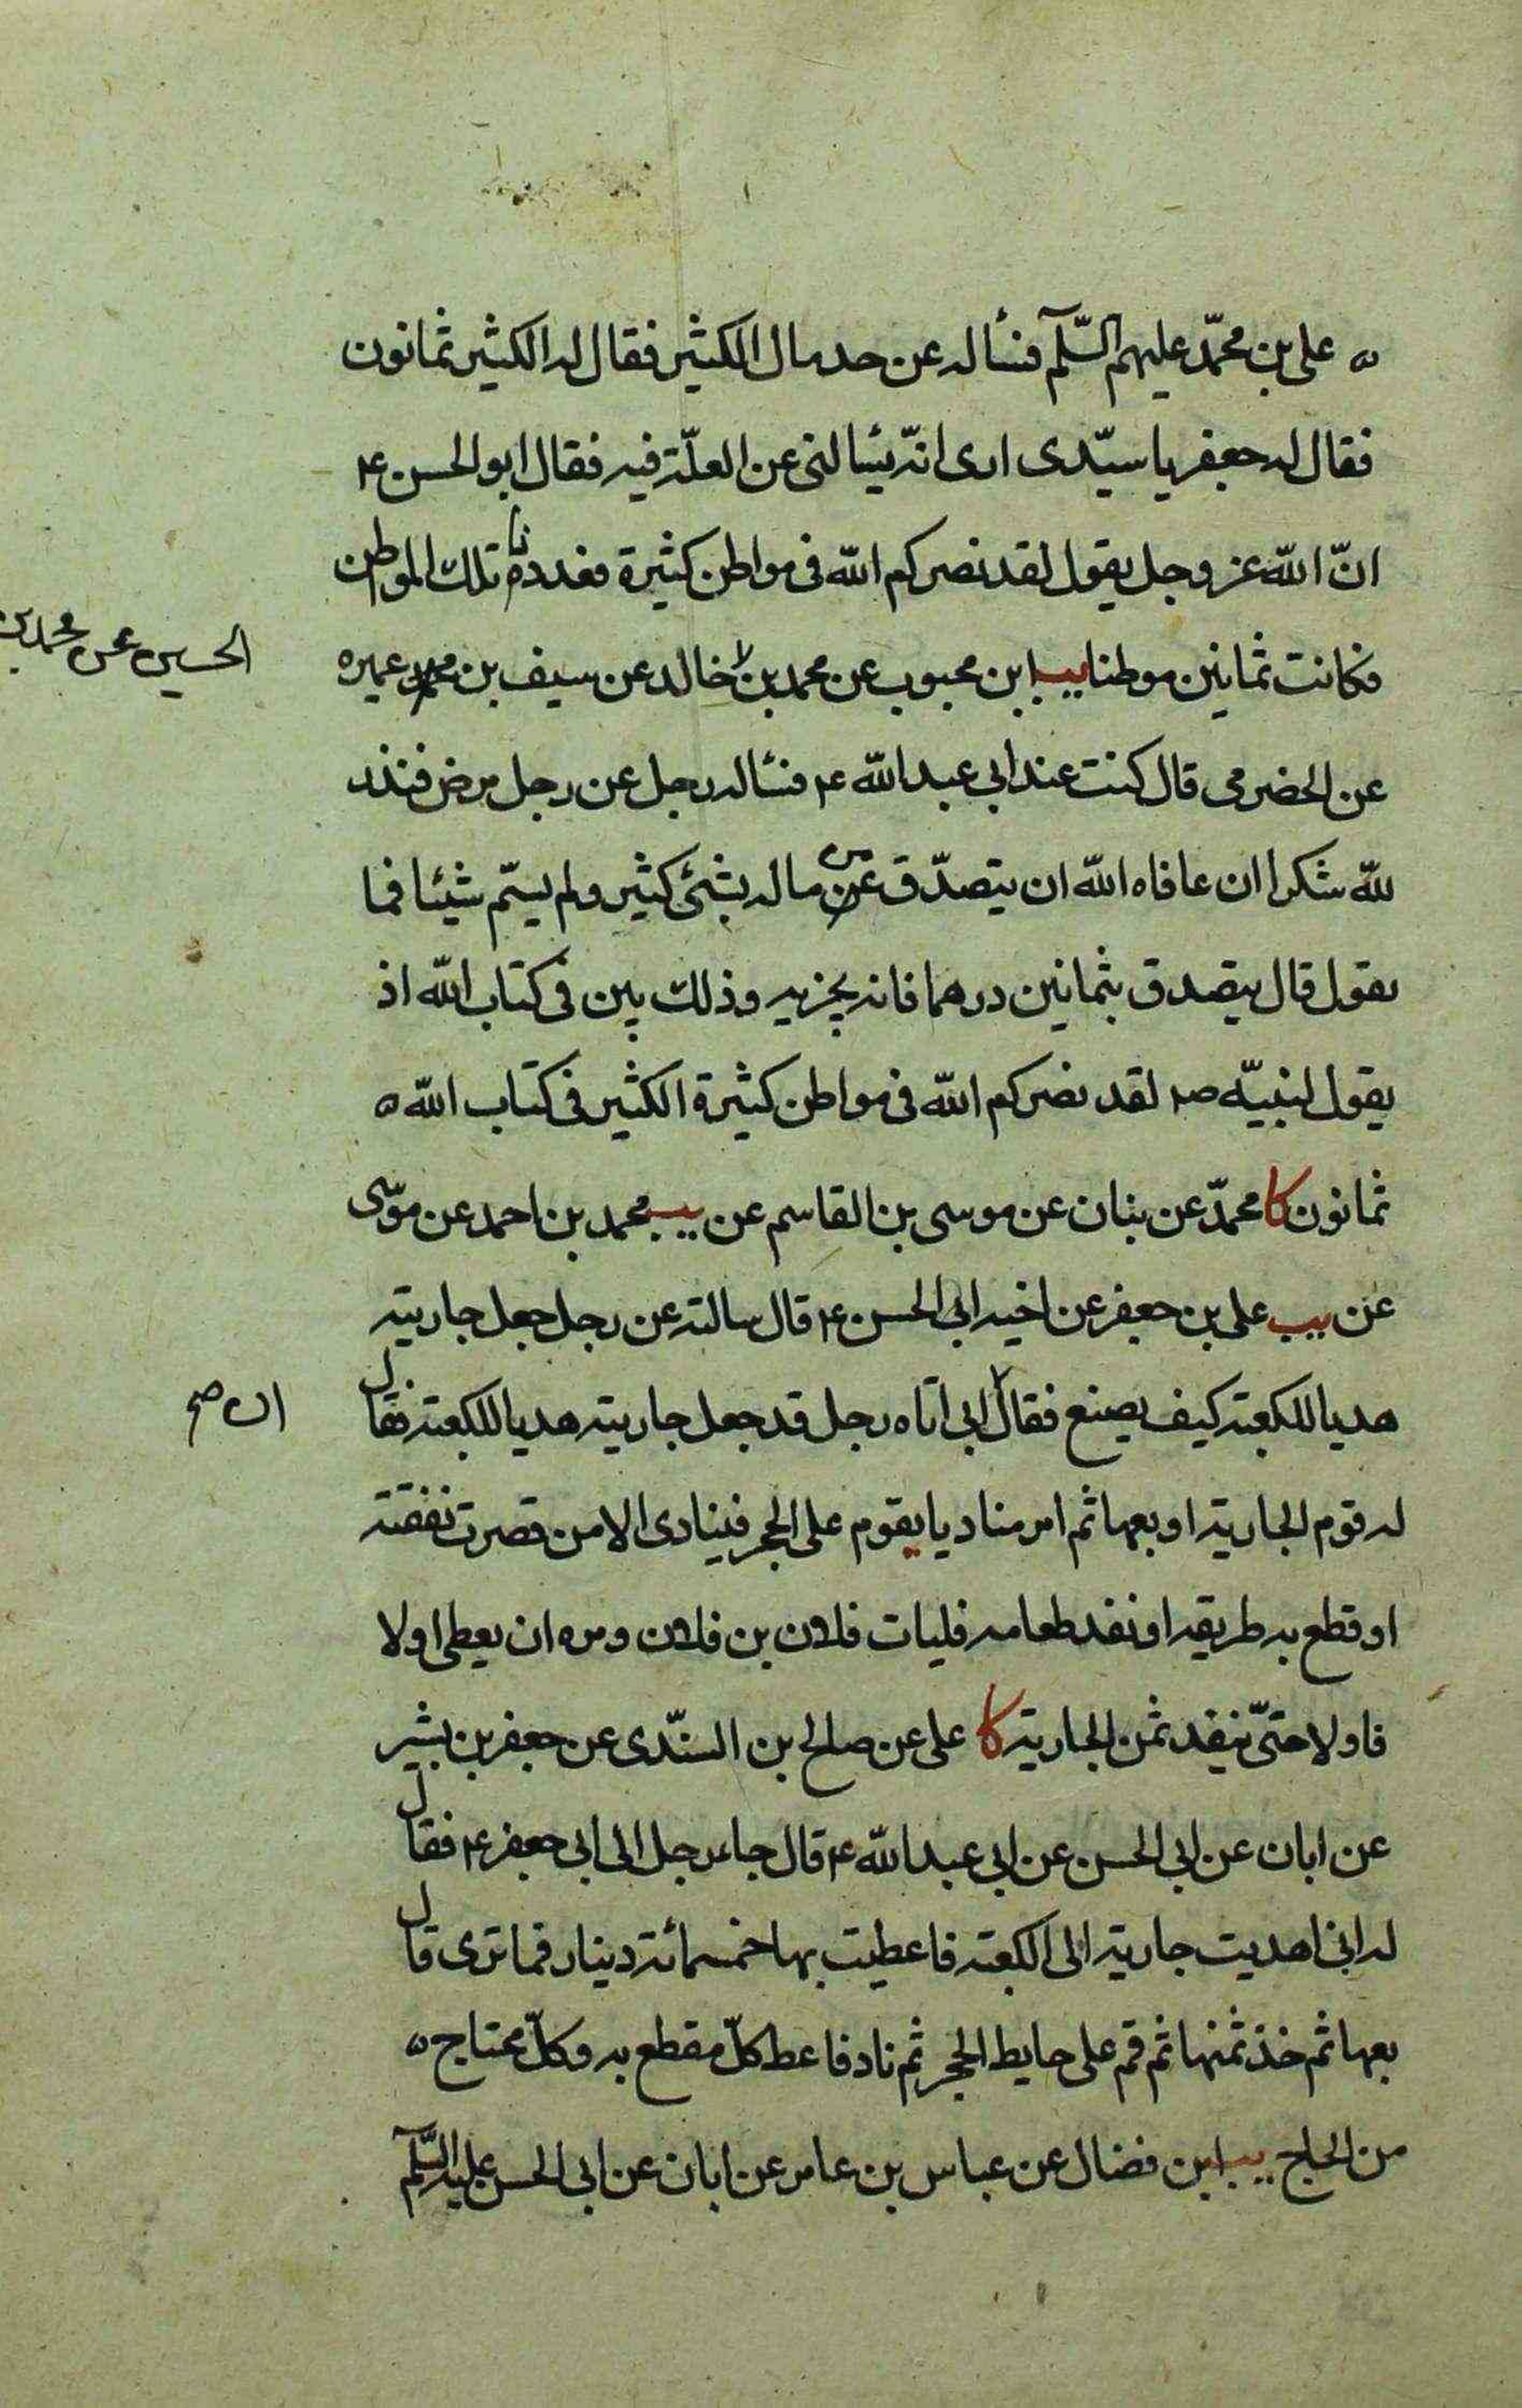 ه علی بن محمّد علیهم السّلم فسأله عن حد مال الکثیر فقال له الکثیر ثمانون
فقال له جعفر یا سیّدی اری انّه یسألنی عن العلّة فیه فقال ابو الحسن ع
انّ اللّه عز وجل یقول لقد نصرکم اللّه فی مواطن کثیرة فعددنا تلك المواطن
فکانت ثمانین موطنا یب ابن محبوب عن محمد بن خالد عن سیف بن عمیره
الحسین عن محمد بن
عن الحضرمی قال کنت عند ابی عبد اللّه ع فسأله رجل عن رجل مرض فنذر
للّه شکرا ان عافاه اللّه ان یتصدّق من ماله بشئ کثیر ولم یسّم شیئا فما
یقول قال یتصدق بثمانین درهما فانه یجزیه وذلك بین فی کتاب اللّه اذ
یقول لنبیّه ص لقد نصرکم اللّه فی مواطن کثیرة الکثیر فی کتاب اللّه ه
ثمانون کا محمّد عن بنان عن موسی بن القاسم عن یب محمد بن احمد عن موسی
عن یب علی بن جعفر عن اخیه ابی الحسن ع قال سالته عن رجل جعل جاریته
هدیا للکعبة کیف یصنع فقال ابی اتاه رجل قد جعل جاریته هدیا للکعبة فقال
ان صح
له قوم الجاریة او بعها ثم امر منادیا یقوم علی الحجر فینادی الا من قصرت نفقته
او قطع به طریقه او نفد طعامه فلیات فلان بن فلان ومره ان یعطی اولا
فاولا حتّی ینفد ثمن الجاریة کا علی عن صالح بن السّندی عن جعفر بن بشیر
عن ابان عن ابی الحسن عن ابی عبد اللّه ع قال جاء رجل الی ابی جعفر ع فقال
له انی اهدیت جاریة الی الکعبة فاعطیت بها خمسمائة دینار فما تری قال
بعها ثم خذ ثمنها ثم قم علی حایط الحجر ثم ناد فاعط کلّ مقطع به وکلّ محتاج ه
من الحاج یب ابن فضال عن عباس بن عامر عن ابان عن ابی الحسن علیه السّلم